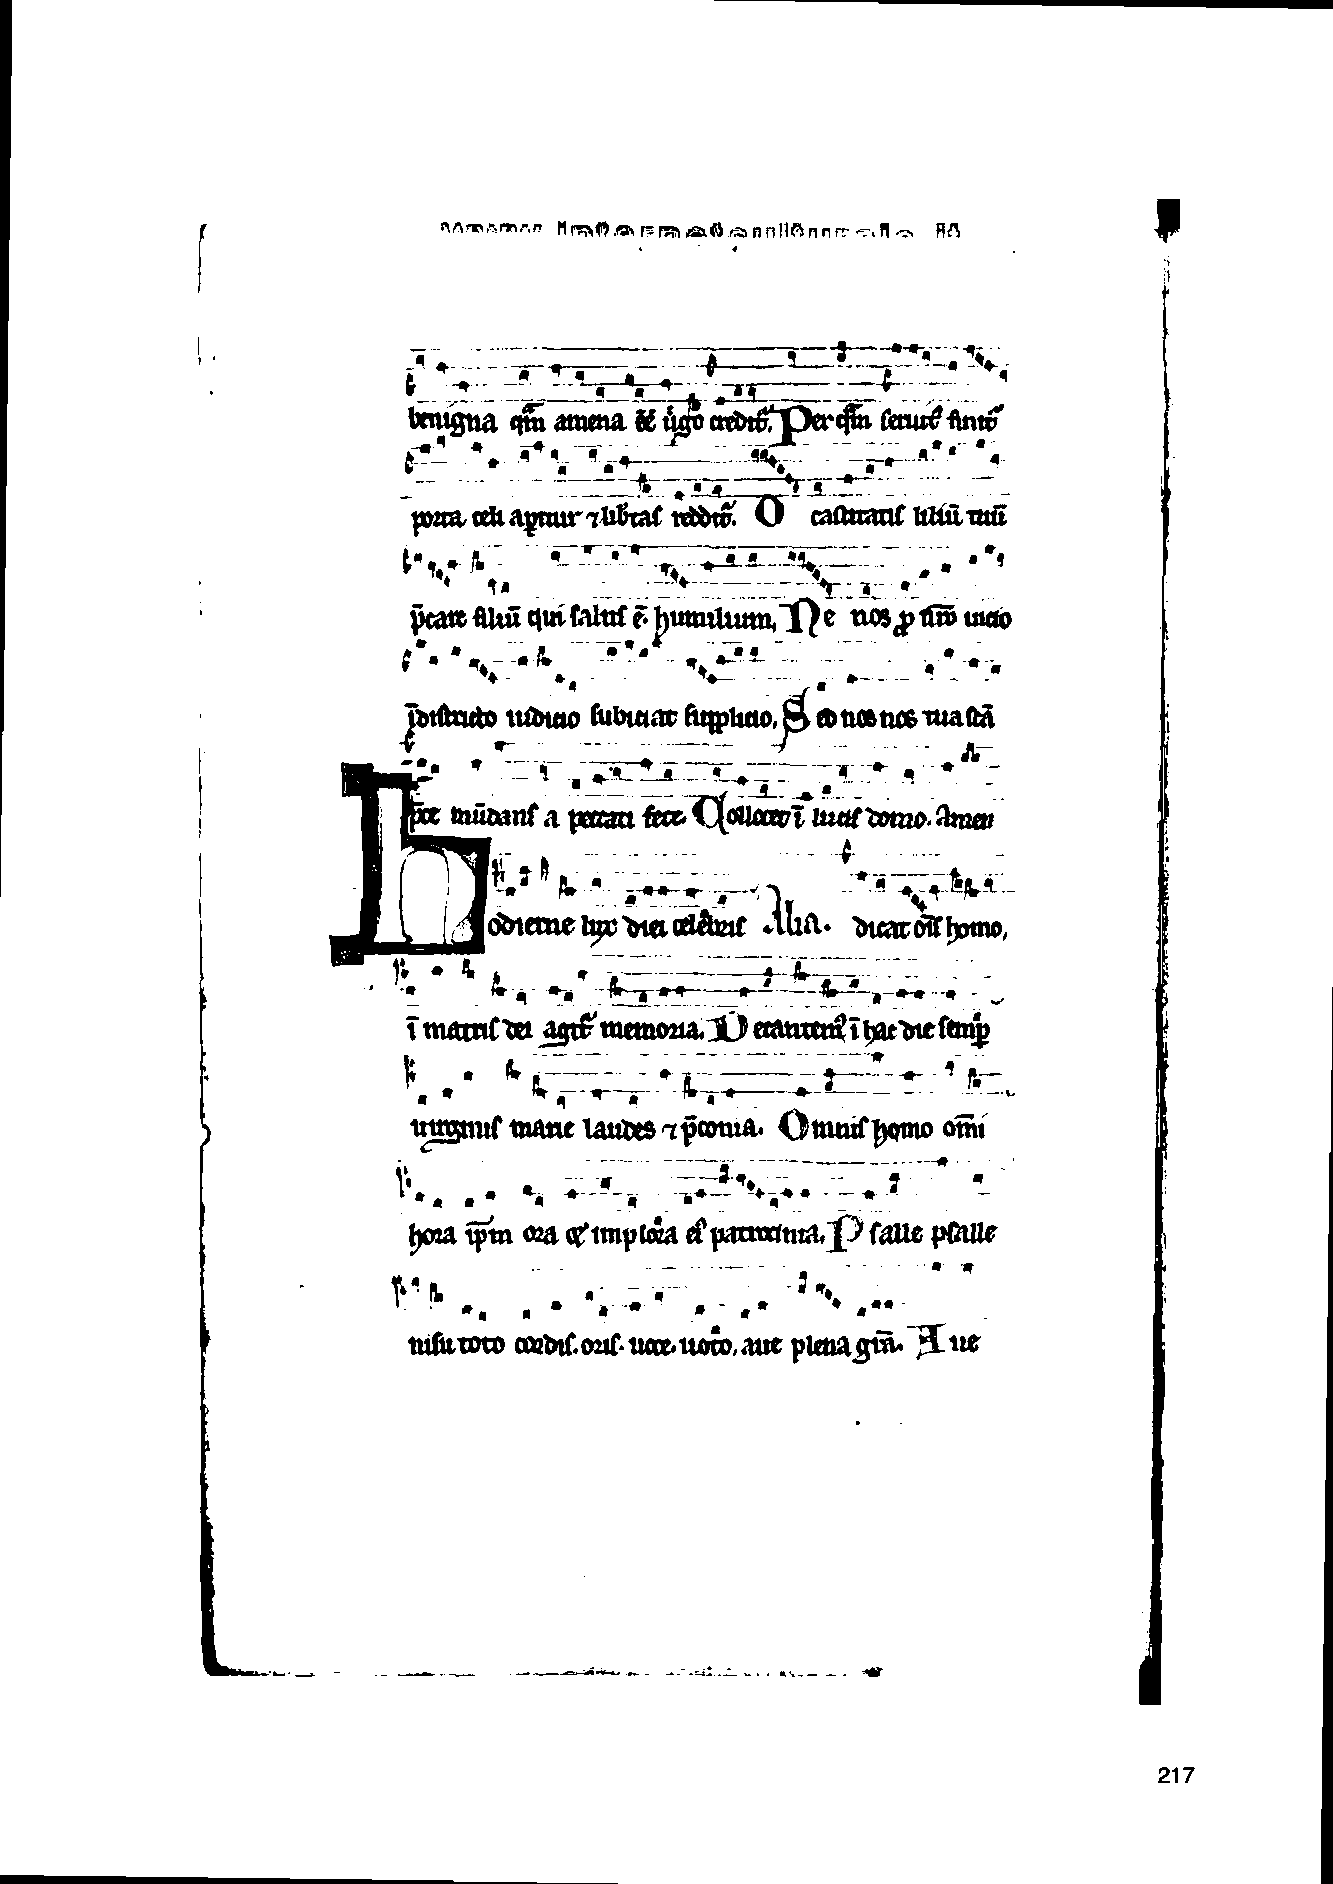 benigna qm̄ amena & ůgo creditᷣ. Per qm̄ seruit᷒ finitᷣ
porta celi apitur ⁊ libtas redditᷣ. O castitatis liliū tuū
p̄care filiū qui salus ē humilium, Ne nos ꝓ uicio
ī districto iudicio subiciat supplicio, S nos nos tua scā
p̄ce mūdans a peccati fece. Collocet ī lucis domo. Amen
Hodierne lux diei celebris Alia. dicat oīs homo,
ī matris dei agitᷣ memoria. D ī hac die semp
uirginis marie laudes ⁊ p̄conia. Omnis homo om̄i
hora ip̄m ora & implora eius patrocinia, Psalle psalle
nisu toto cordis. oris. uoce. uoto, aue plena grā. Aue
217